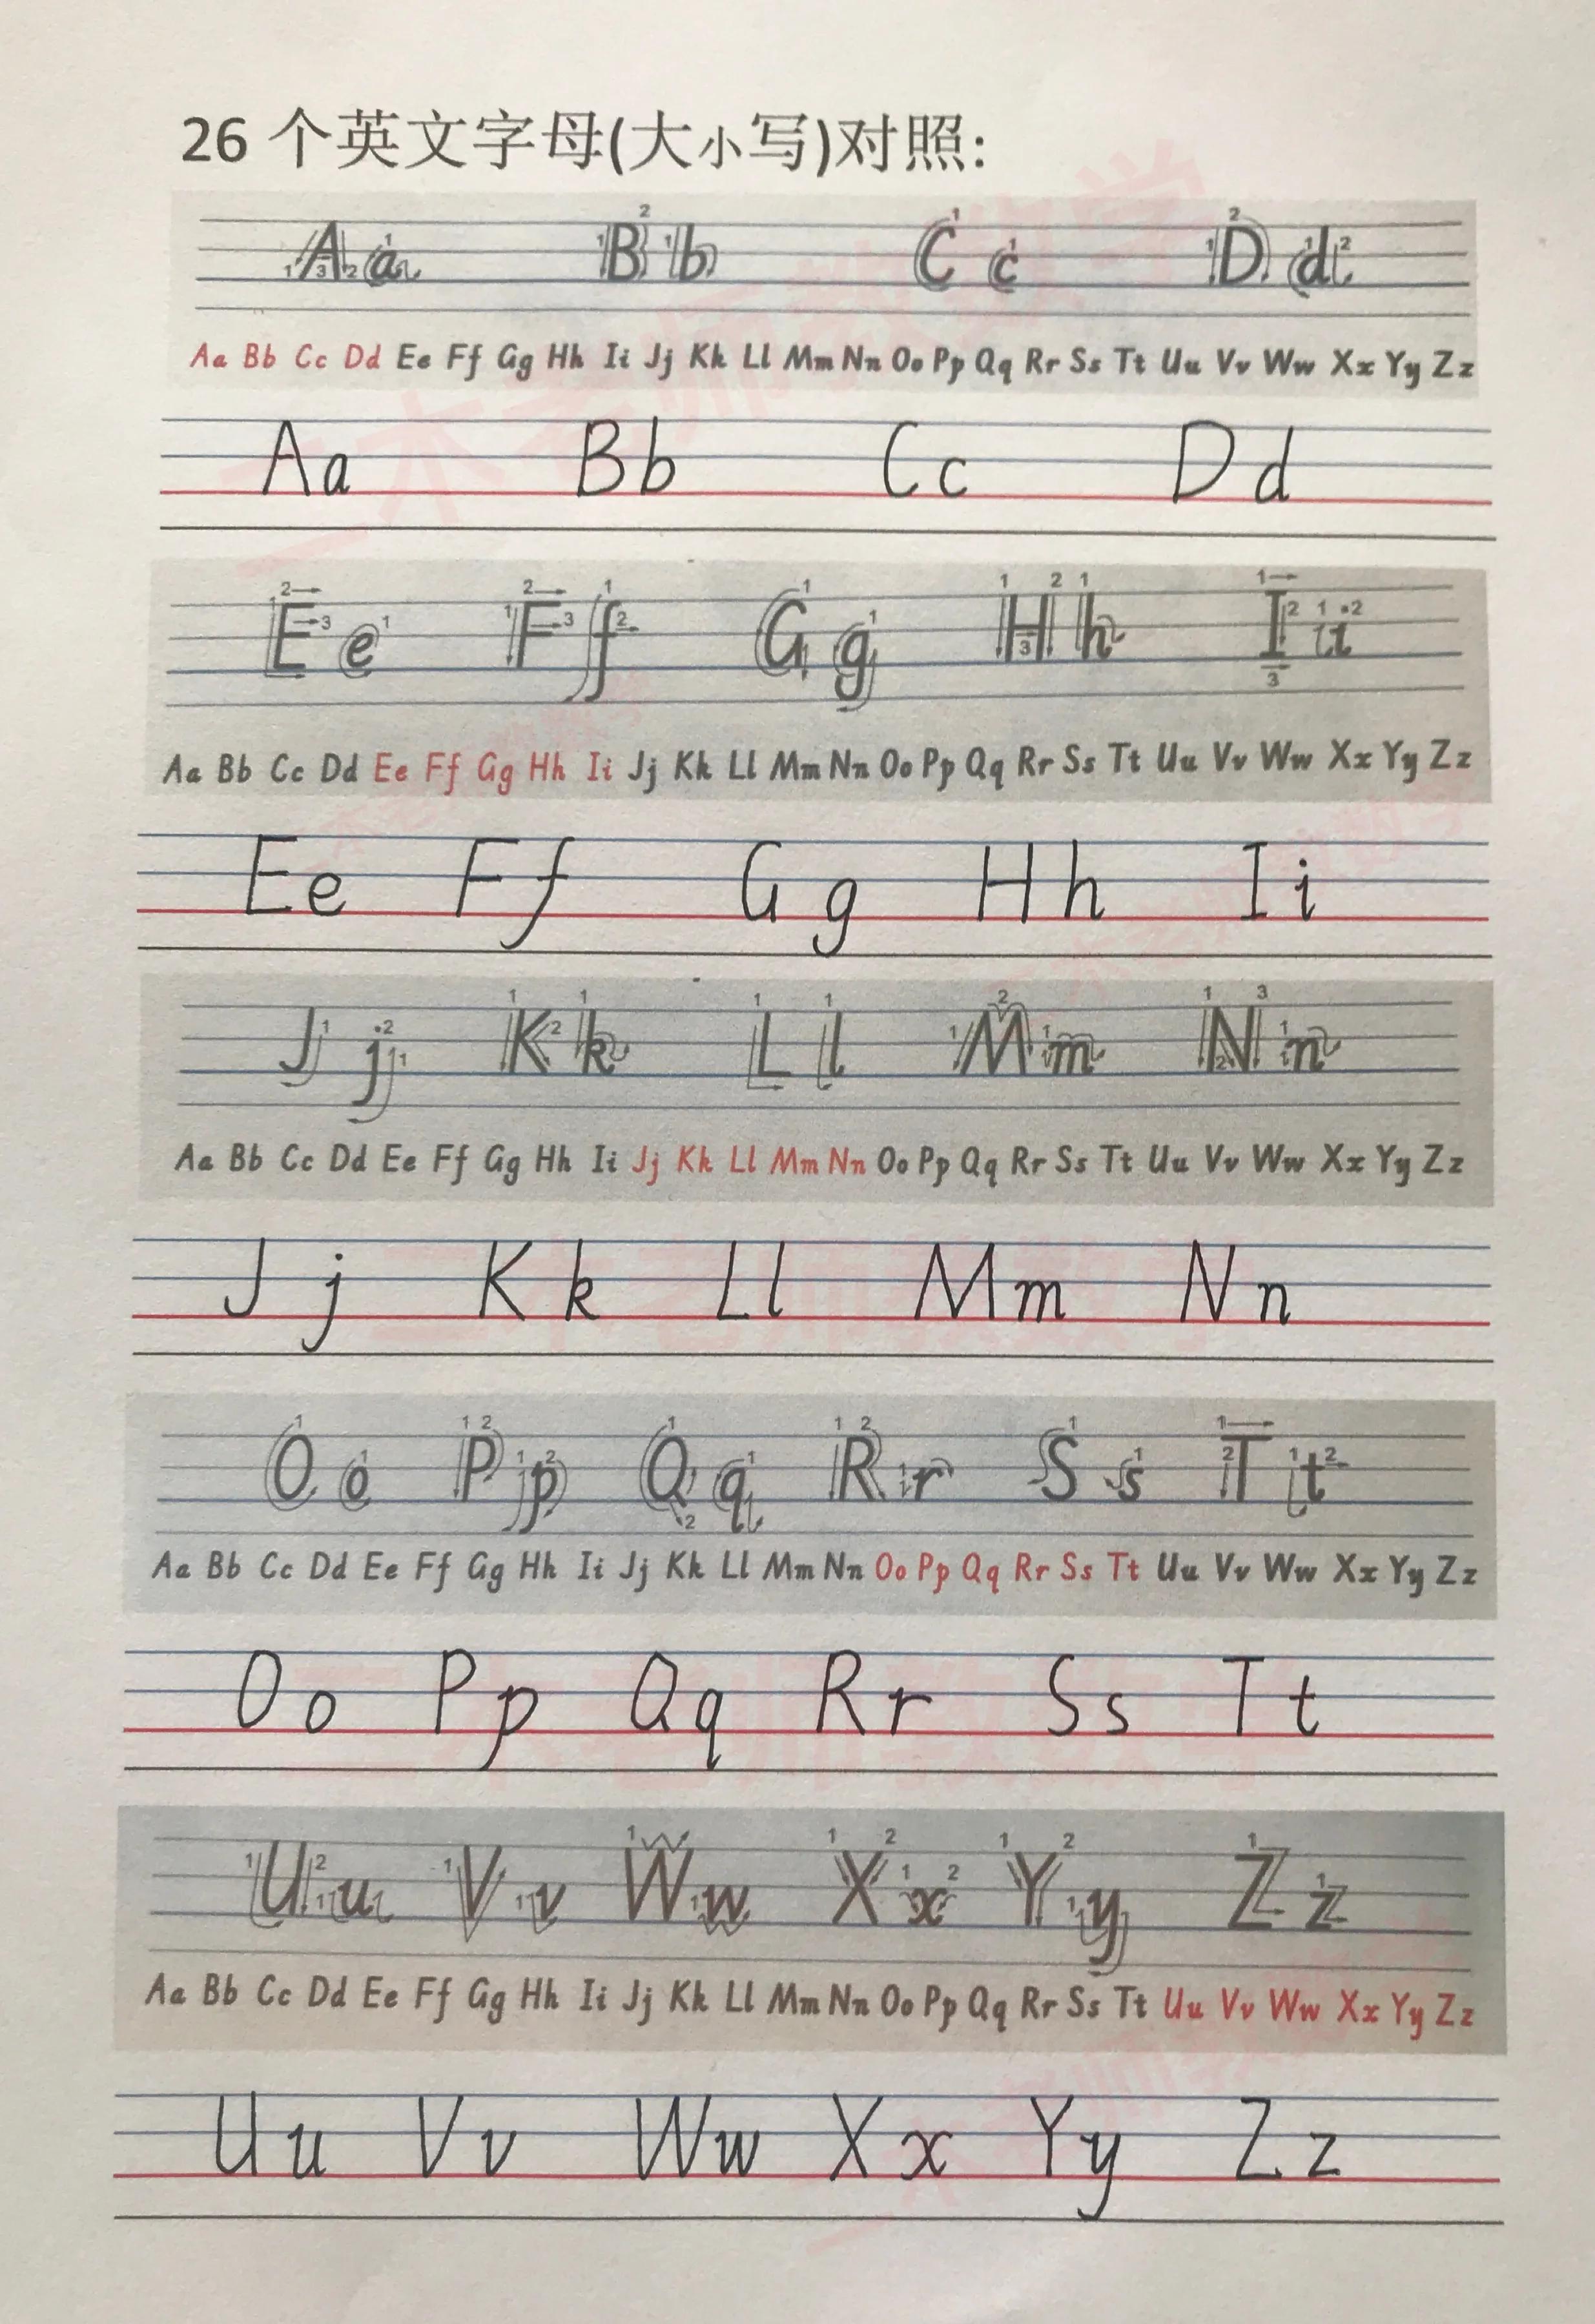 26 个英文字母(大小写)对照:
A a B b C c D d
Aa Bb Cc Dd Ee Ff Gg Hh Ii Jj Kk Ll Mm Nn Oo Pp Qq Rr Ss Tt Uu Vv Ww Xx Yy Zz
Aa Bb Cc Dd
E e F f G g H h I i
Aa Bb Cc Dd Ee Ff Gg Hh Ii Jj Kk Ll Mm Nn Oo Pp Qq Rr Ss Tt Uu Vv Ww Xx Yy Zz
Ee Ff Gg Hh Ii
J j K k L l M m N n
Aa Bb Cc Dd Ee Ff Gg Hh Ii Jj Kk Ll Mm Nn Oo Pp Qq Rr Ss Tt Uu Vv Ww Xx Yy Zz
Jj Kk Ll Mm Nn
O o P p Q q R r S s T t
Aa Bb Cc Dd Ee Ff Gg Hh Ii Jj Kk Ll Mm Nn Oo Pp Qq Rr Ss Tt Uu Vv Ww Xx Yy Zz
Oo Pp Qq Rr Ss Tt
U u V v W w X x Y y Z z
Aa Bb Cc Dd Ee Ff Gg Hh Ii Jj Kk Ll Mm Nn Oo Pp Qq Rr Ss Tt Uu Vv Ww Xx Yy Zz
Uu Vv Ww Xx Yy Zz